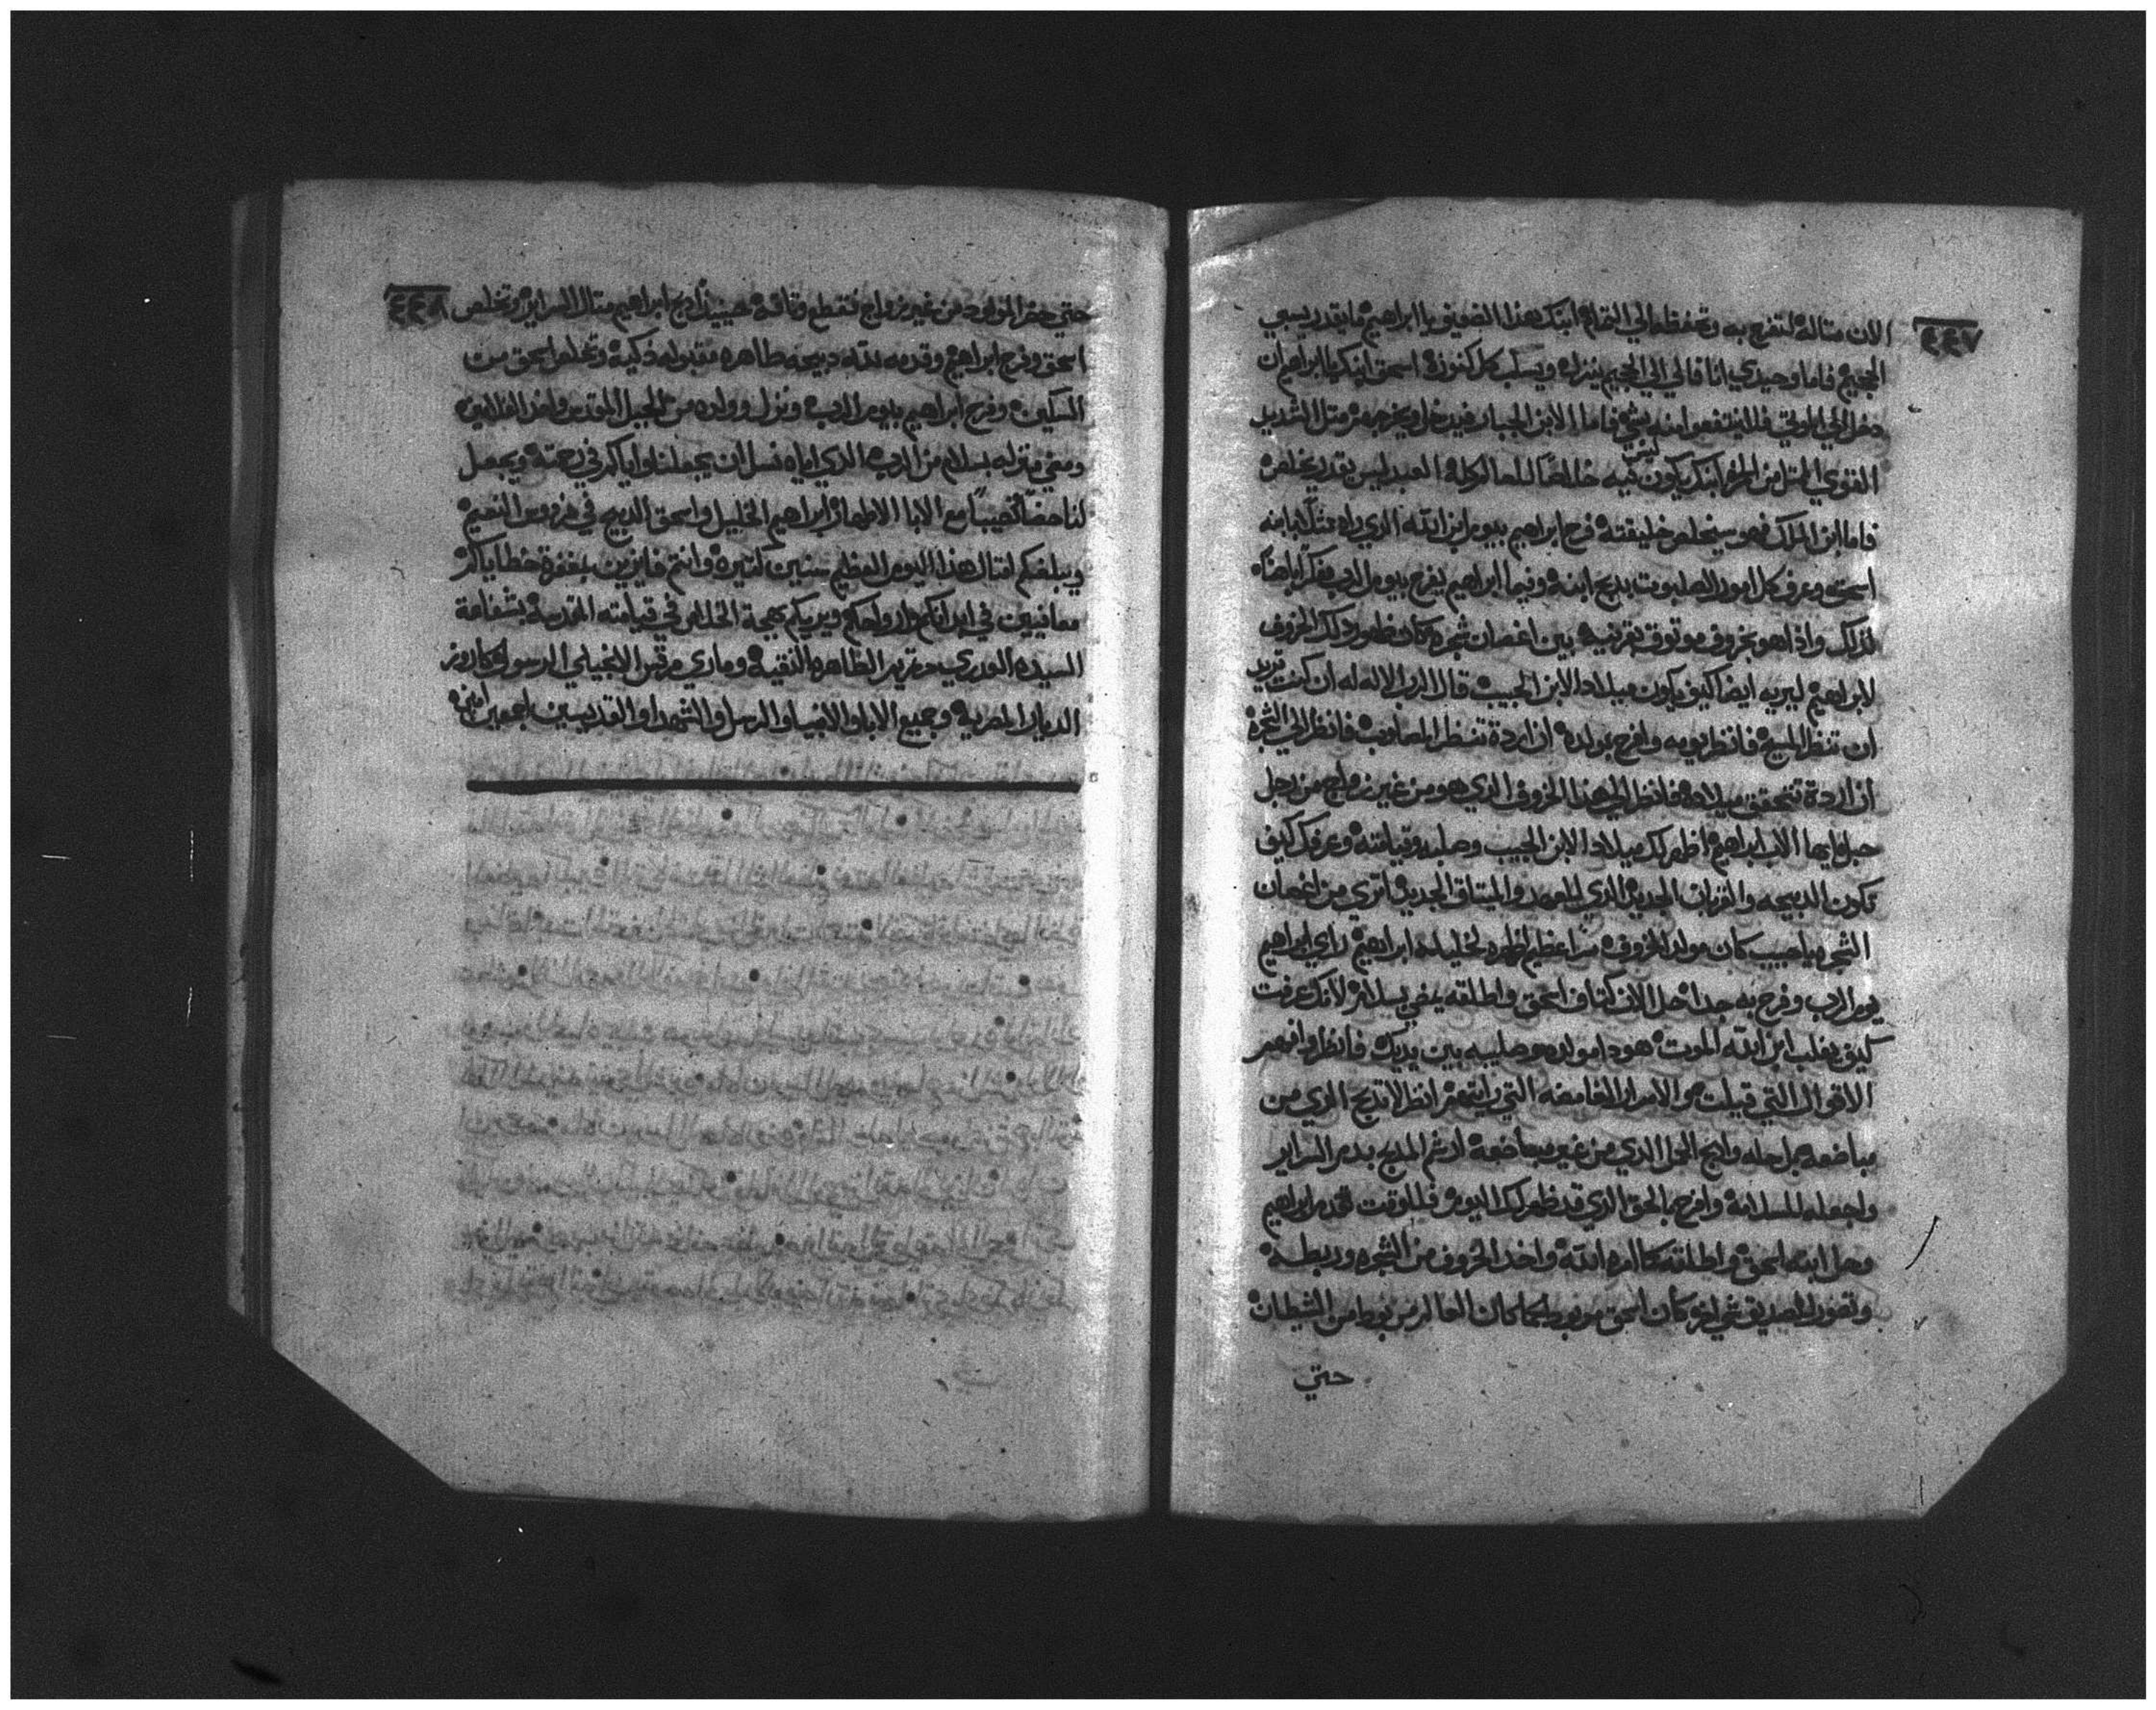 ٤٤٧
الان مثاله لتفرح به وتحفظه الي التمام ابنك هذا الضعيف يا ابراهيم ما يقدر يسبي
الجحيم فاما وحيدي انا فالي الجحيم ينزل ويسلب كل كنوزه اسحق ابنك يا ابراهيم ان
دخل الي الموتي فلا ينتفعوا منه بشي فاما الابن الجبار فيدخل ويخرج مثل الشديد
القوي ابنك ليس يكون فيه خلاصا للعالم كله العبد ليس يقدر يخلص
فاما ابن الملك فهو سيخلص خليقته فرح ابراهيم بيوم ابن الله الذي راه مثل بابنه
اسحق وعرف كل امور الصلبوت بذبح ابنه وفيما ابراهيم يفرح بيوم الرب مفكرا
لذلك واذا هو بخروف موثوق بقرنيه بين اغصان شجره كان ظهور ذلك الخروف
لابراهيم ليريه ايضا كيف يكون ميلاد الابن الحبيب قال الاب الاله له ان كنت تريد
ان تنظر المسيح فانظر يومه وافرح بولده ان اردة تنظر المصلوب فانظر الي الشجره
ان اردة تتحقق ميلاده فانظر الي هذا الخروف الذي هو من غير زواج من رجل
حبل ايها الاب ابراهيم اظهر لك ميلاد الابن الحبيب وصلبه وقيامته وعرفك كيف
تكون الذبيحه والقربان الجديد الذي للعهد والميثاق الجديد اتري من اغصان
الشجره يا حبيب كان مولد الخروف سرا عظيم اظهره لخليله ابراهيم راي ابراهيم
يوم الرب وفرح به جدا حل الان كتاف اسحق واطلقه يمضي بسلام لانك عرفت
كيف يغلب ابن الله الموت هودا مولده وصليبه بين يديك فانظر وافهم
الاقوال التي قيلت والاسرار الغامضه التي رايتها انظر لا تذبح الذي من
مباضعه بل حله واذبح الحمل الذي من غير مباضعة ارسم المذبح بدم السراير
واجعله للسلامة وافرح بالحق الذي قد ظهر لك اليوم فللوقت تقدم ابراهيم
وحل ابنه اسحق واطلقه كما امره الله واخد الخروف من الشجره وربطه
وتصور الصديق شي اخر كان اسحق مربوط كما كان العالم مربوط من الشيطان
حتي
٤٤٨
حتي حضر المولود من غير زواج فقطع وثاقه حينيذ ذبح ابراهيم مثال السراير وتخلص
اسحق وفرح ابراهيم وقدمه لله دبيحه طاهره مقبوله ذكية وتخلص اسحق من
السكين وفرح ابراهيم بيوم الرب ونزل وولده من الجبل المقدس واخد الغلامين
ومضي منزله بسلام من الرب الذي اياه نسل ان يجعلنا واياكم في رحمته ويجعل
لنا حضا ونصيبا مع الابا الاطهار ابراهيم الخليل واسحق الدبيح في فردوس النعيم
ويبلغكم امثال هذا اليوم العظيم سنين كتيره وانتم فايزين بغفرة خطاياكم
معافيين في ابدانكم وارواحكم ويريكم بهجة الخلاص في قيامته المقدسه بشفاعة
السيده العدري مرتمريم الطاهره النقيه وماري مرقس الانجيلي الرسول كاروز
الديار المصريه وجميع الابا والانبيا والرسل والشهدا والقديسين اجمعين امين